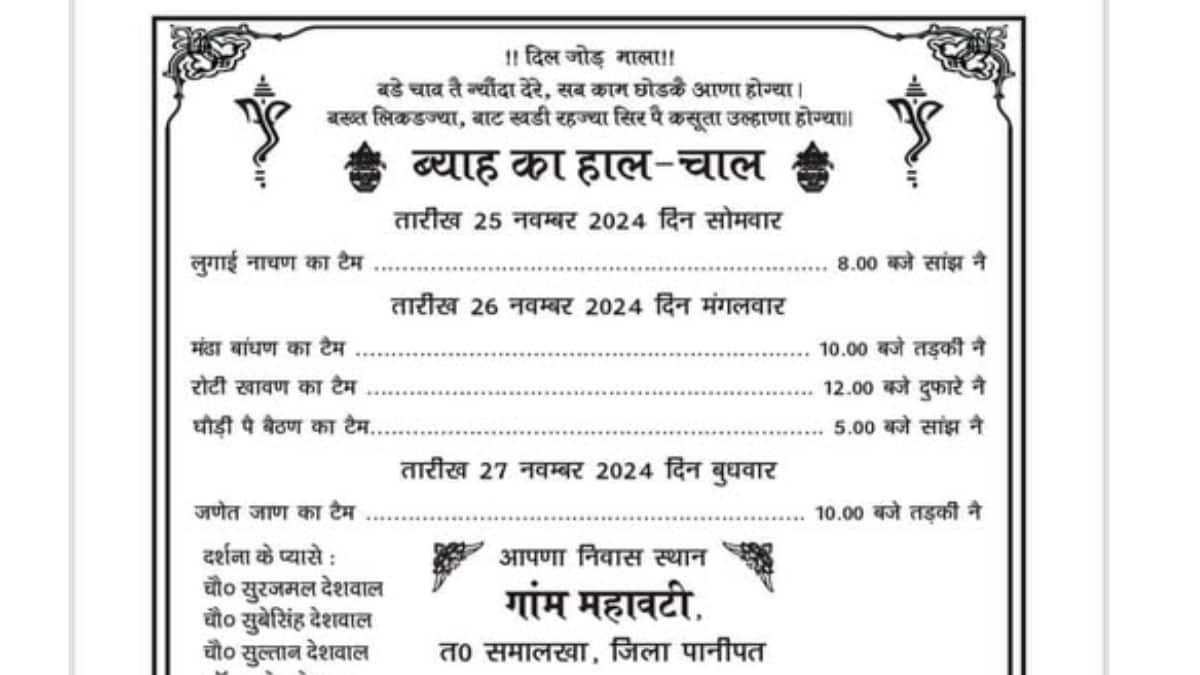 !! दिल जोड़ माला!!
बडे चाव तै न्यौंदा देरे, सब काम छोडकै आणा होग्या।
बख्त लिकडज्या, बाट खडी रहज्या सिर पै कसूता उल्हाणा होग्या॥
ब्याह का हाल-चाल
तारीख 25 नवम्बर 2024 दिन सोमवार
लुगाई नाचण का टैम ........................................................................ 8.00 बजे सांझ नै
तारीख 26 नवम्बर 2024 दिन मंगलवार
मंढा बांधण का टैम ........................................................................ 10.00 बजे तड़की नै
रोटी खावण का टैम ....................................................................... 12.00 बजे दुफारे नै
घौड़ी पै बैठण का टैम........................................................................ 5.00 बजे सांझ नै
तारीख 27 नवम्बर 2024 दिन बुधवार
जणेत जाण का टैम ...................................................................... 10.00 बजे तड़की नै
दर्शना के प्यासे :
चौ० सुरजमल देशवाल
चौ० सुबेसिंह देशवाल
चौ० सुल्तान देशवाल
आपणा निवास स्थान
गांम महावटी,
त0 समालखा, जिला पानीपत